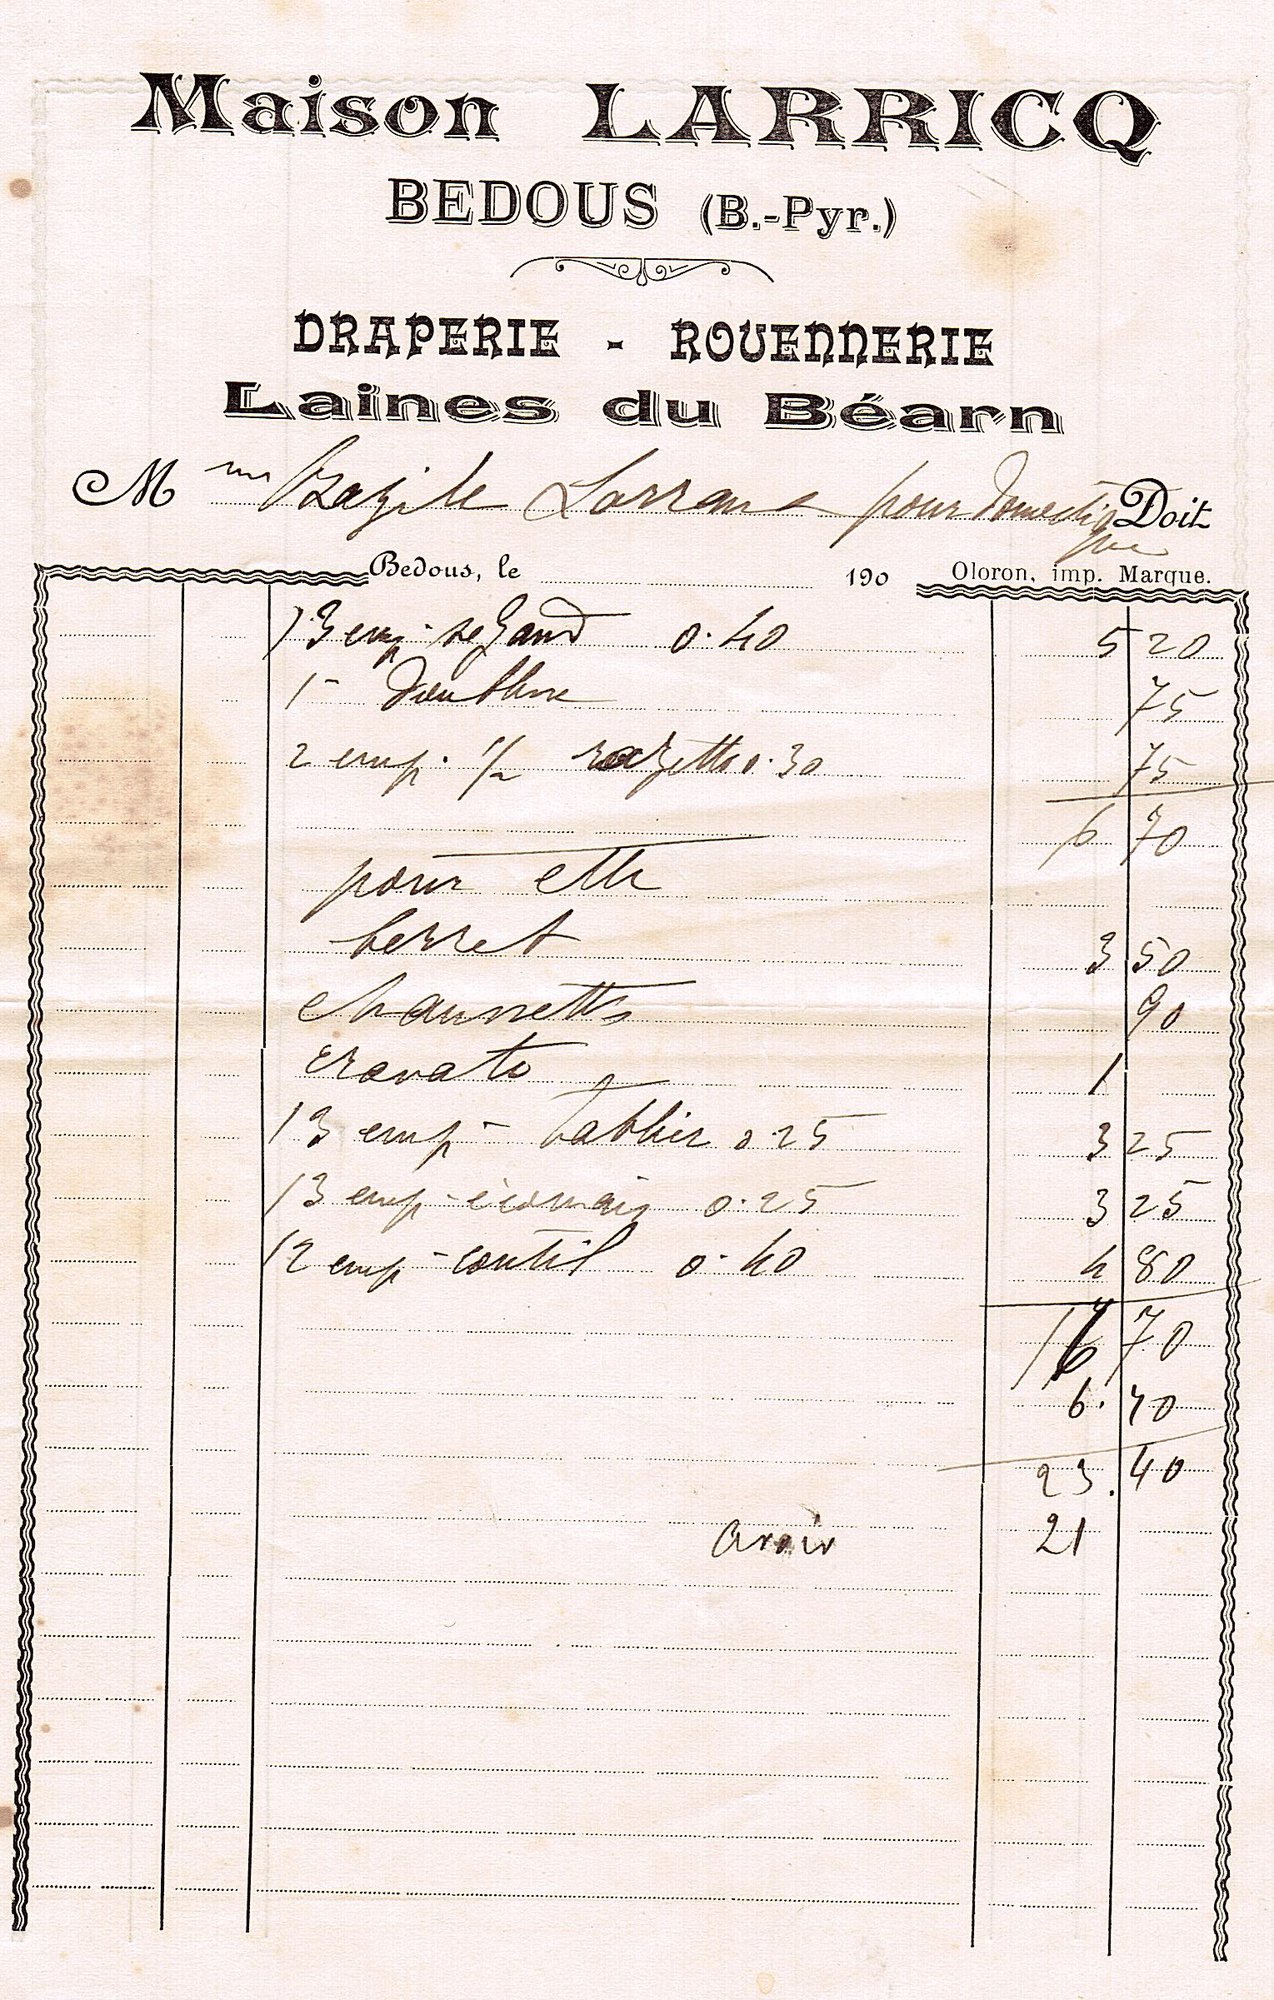 Maison LARRICQ
BEDOUS (B.-Pyr.)
DRAPERIE - ROUENNERIE
Laines du Béarn
M me Bazile Larrane pour domestique Doit
Bedous, le 190
Oloron, imp. Marque.
13 emp. 0.40 5 20
1 doublure 75
2 emp. 1/2 0.30 75
6 70
pour elle
berret 3 50
chaussetts 90
cravate 1
13 emp - tablier 0.25 3 25
13 emp - 0.25 3 25
12 emp - coutil 0.40 4 80
16 70
6.70
23.40
avoir 21